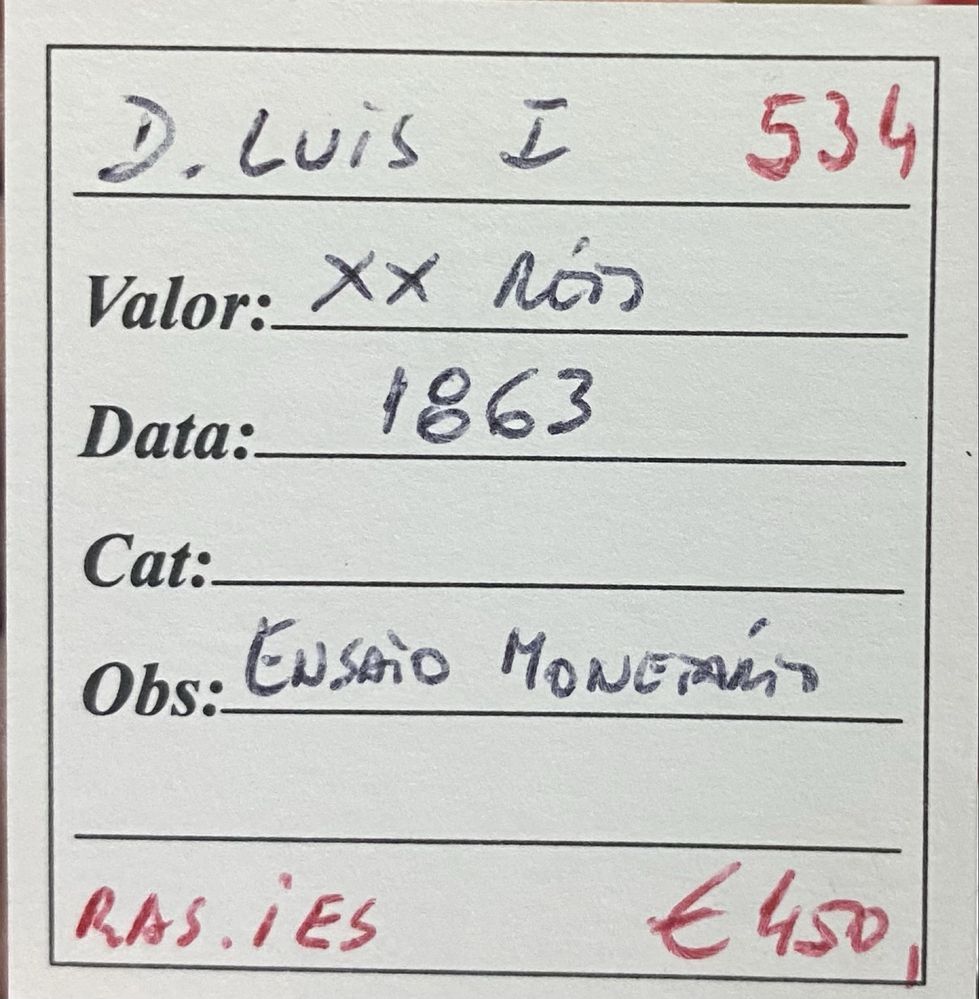 D. LUIS I 534
Valor: XX RÉIS
Data: 1863
Cat:
Obs: ENSAIO MONETÁRIO
RAS.iES € 450,